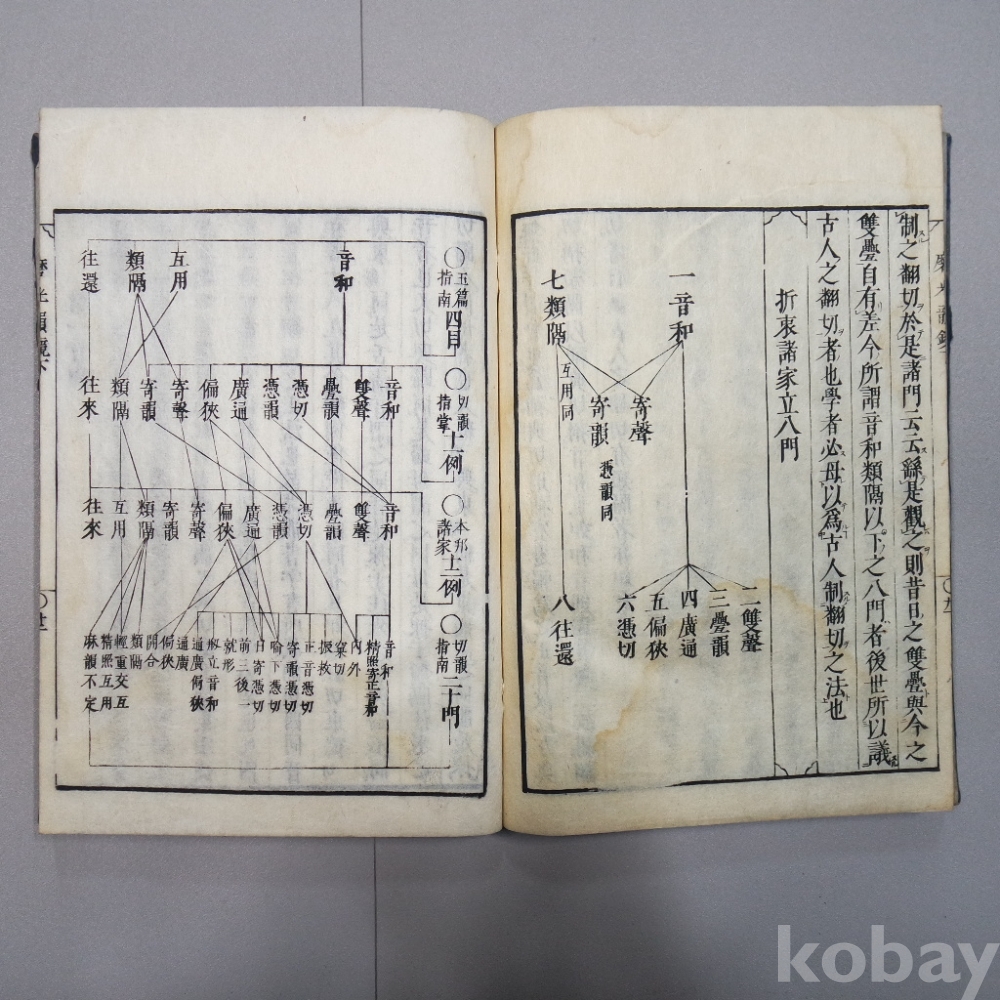 制之翻切於是諸門云云繇是觀之則昔日之雙疊與今之
雙疊自有差今所謂音和類隔以下之八門者後世所以議
古人之翻切者也學者必毋以爲古人制翻切之法也
折衷諸家立八門
一音和
二雙聲
三疊韻
四廣通
五偏狹
六憑切
寄聲
寄韻 憑韻同
七類隔 互用同
八往還
〇玉篇指南四目
音和
互用
類隔
往還
〇切韻指掌十一例
音和
雙聲
疊韻
憑切
憑韻
廣通
偏狹
寄聲
寄韻
類隔
往來
〇本邦諸家十二例
音和
雙聲
疊韻
憑切
憑韻
廣通
偏狹
寄聲
寄韻
類隔
互用
往來
〇切韻指南二十門
音和
精照寄正音和
內外
窠切
振救
正音憑切
寄韻憑切
喻下憑切
日寄憑切
前三後一
就形
通廣侷狹
通廣
侷狹
開合
類隔
輕重交互
精照互用
麻韻不定
磨光韻鏡下
kobay